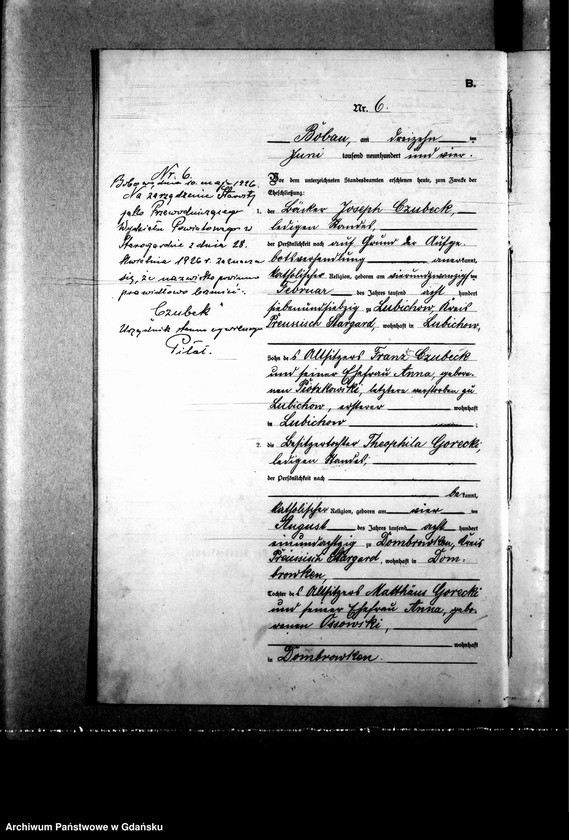 B.
Nr. 6.
Bobau, am dreizehn ten
Juni tausend neunhundert und vier.
Vor dem unterzeichneten Standesbeamten erschienen heute, zum Zwecke der
Eheschließung:
1. der Bäcker Joseph Czubeck,
ledigen Standes,
der Persönlichkeit nach auf Grund der Aufge-
botsverhandlung anerkannt,
katholischer Religion, geboren am vierundzwanzigsten
Februar des Jahres tausend acht hundert
siebenundsiebzig zu Lubichow, Kreis
Preussisch Stargard, wohnhaft in Lubichow,
Sohn des Altsitzers Franz Czubeck
und seiner Ehefrau Anna, gebore-
nen Piotzkowski, letztere verstorben zu
Lubichow, ersterer wohnhaft
in Lubichow;
2. die Besitzertochter Theophila Gorecki,
ledigen Standes,
der Persönlichkeit nach
bekannt,
katholischer Religion, geboren am vier ten
August des Jahres tausend acht hundert
einundachtzig zu Dombrowken, Kreis
Preussisch Stargard, wohnhaft in Dom-
browken,
Tochter des Altsitzers Matthäus Gorecki
und seiner Ehefrau Anna, gebo-
renen Ossowski,
wohnhaft
in Dombrowken.
Nr. 6.
dnia 10 maja 1926.
Na zarządzenie Starosty
jako Przewodniczącego
Wydziału Powiatowego w
Starogardzie z dnia 28.
kwietnia 1926 r. zaznacza
się, że nazwisko powinno
prawidłowo brzmieć:
"Czubek"
Urzędnik stanu cywilnego
Archiwum Państwowe w Gdańsku